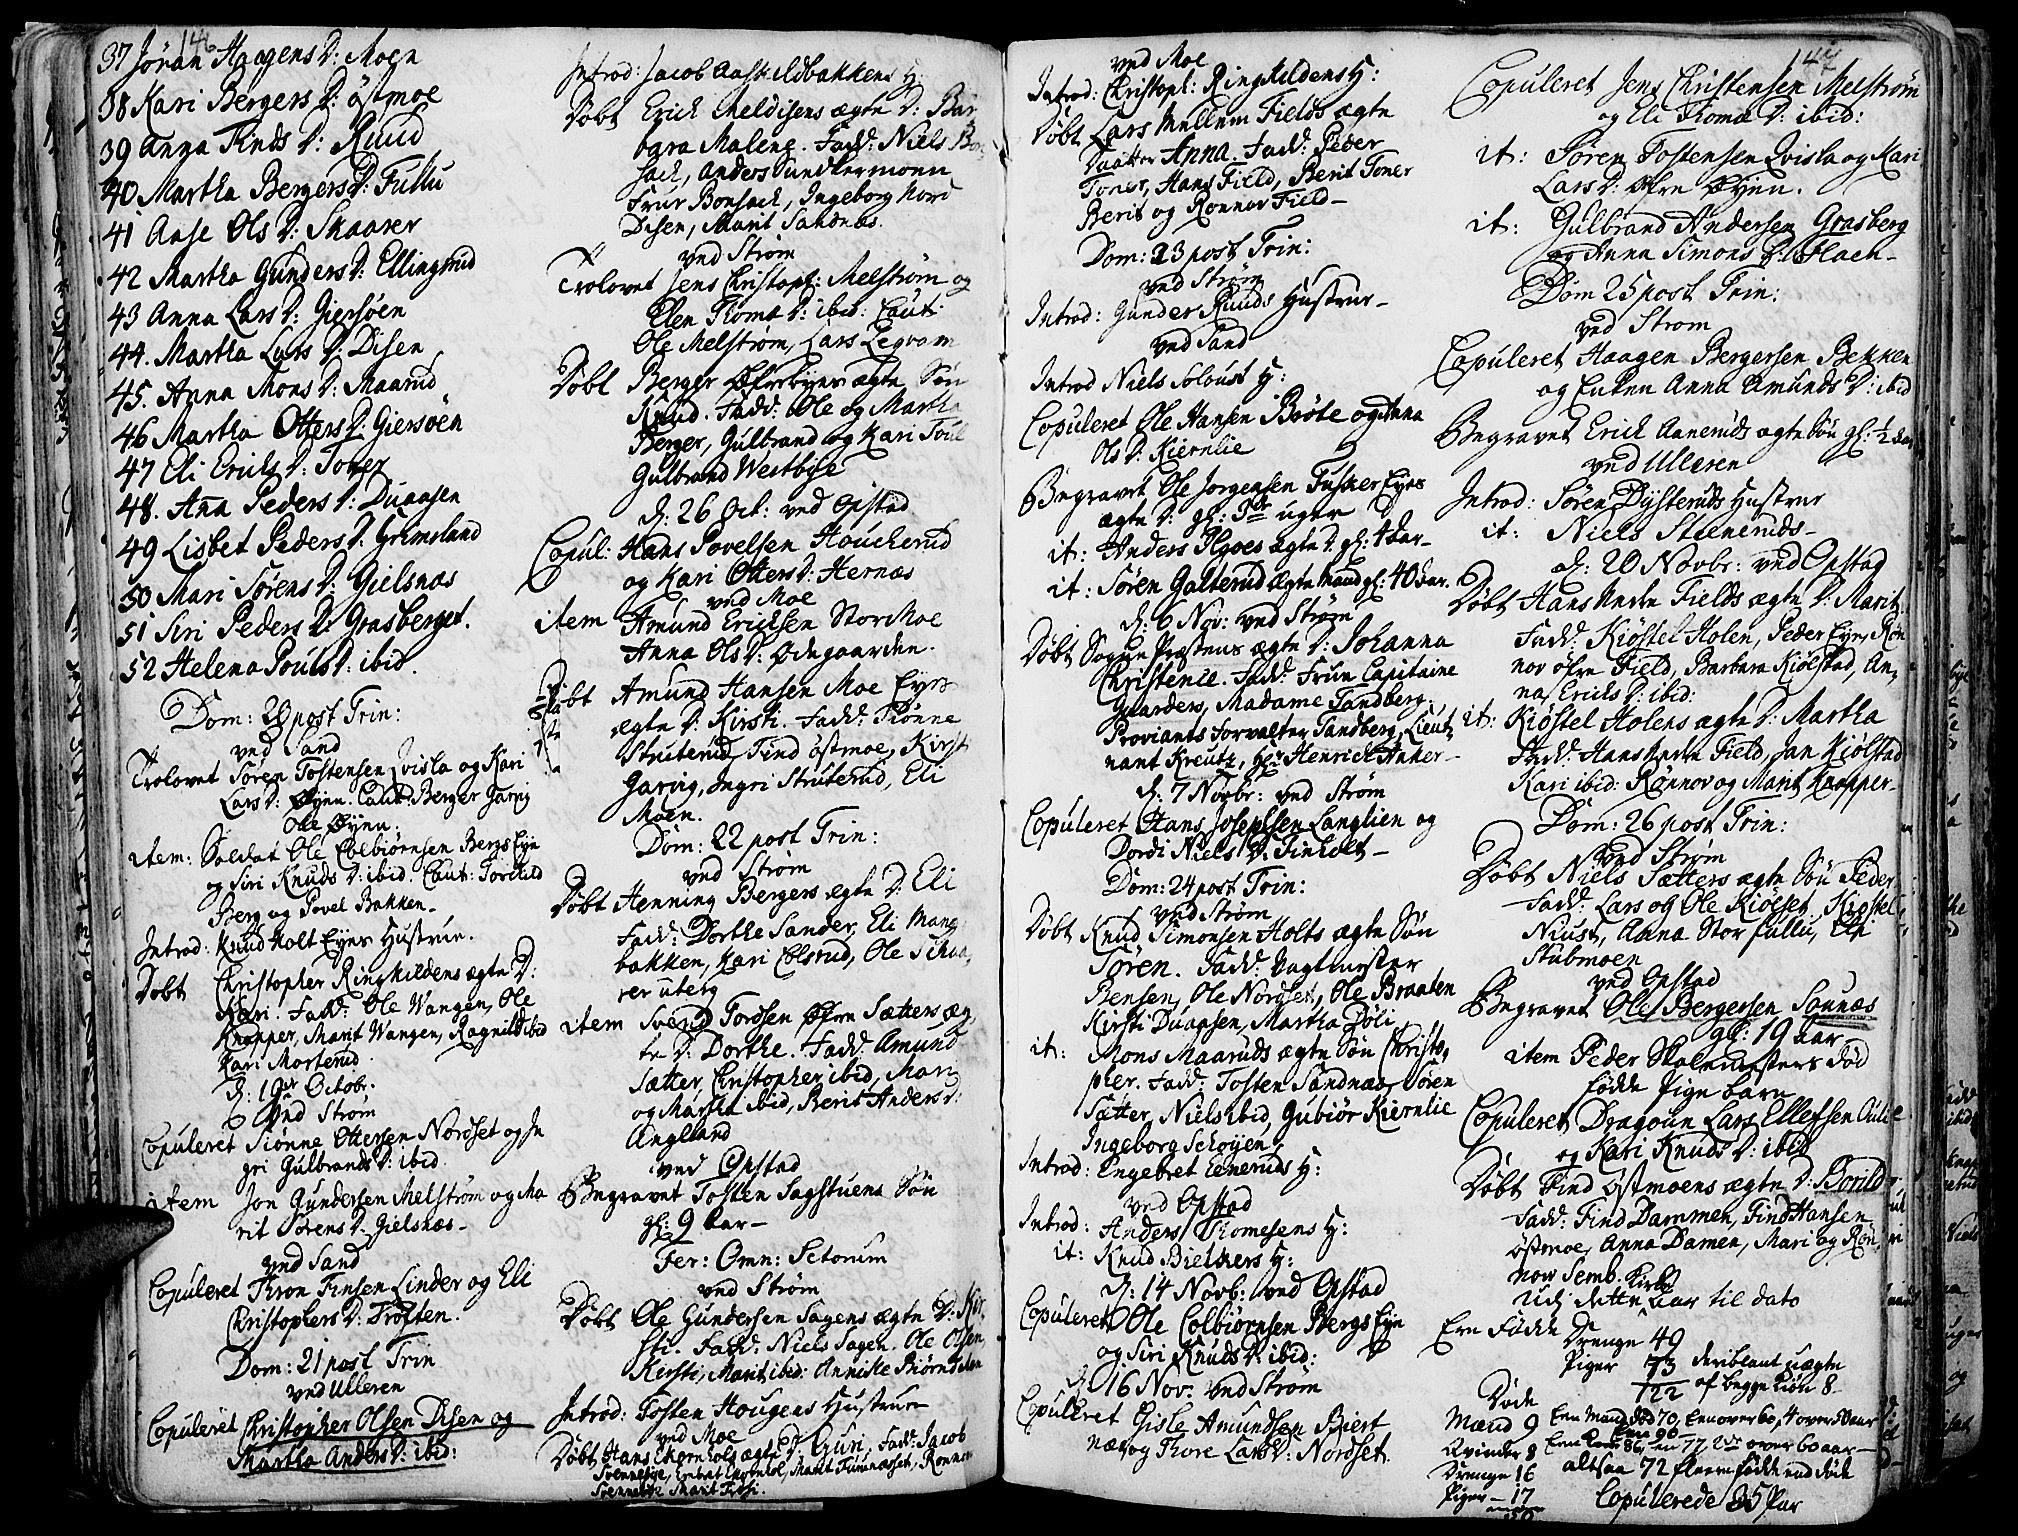 146
37 Jøran Haagens D: Moen
38 Kari Bergers D: Östmoe
39 Anna Finds D: Ruud
40 Martha Bergers D: Fullu
41 Aase Ols D: Skaarer
42 Martha Gunders D: Ellingsrud
43 Anna Lars D: Giersöen
44. Martha Lars D: Disen
45. Anna Mons D: Maarud
46 Martha Otters D: Giersöen
47 Eli Erichs D: Toner
48. Ana Peders D: Duaasen
49 Lisbet Peders D: Grimsland
50 Mari Sörens D: Gielsnæs
51 Siri Peders D: Grasberget.
52 Helena Pouls D: ibid.
Dom: 20 post Trin:
ved Sand
Trolovet Sören Tostensen Qvisla og Kari
Lars D: Øyen. Caut: Berger Garvig
Ole Øyen.
item: Soldat Ole Colbiörnsen Bergs Eye
og Siri Knuds D: ibid. Caut: Torchild
Berg og Povel Bakken.
Introd: Knud Holt Eyes Hustrue.
Döbt Christopher Ringkildens ægte D:
Kari. Fadd: Ole Wangen, Ole
Knapper, Marit Wangen, Ragnild ibid
Kari Morterud.
D: 19 Octobr.
ved Ström
Copuleret Siönne Ottersen Nordset og In
gri Gulbrands D: ibid.
item Jon Gundersen Melström og Ma
rit Sörens D: Gielsnæs-
ved Sand
Copuleret Thron Finsen Linder og Eli
Christophers D: Trösten.
Dom: 21 post Trin
ved Ulleren
Copuleret Christopher Olsen Disen og
Martha Anders D: ibid:
Introd: Jacob Aaskildbakkens H:
Döbt Erich Meldisens ægte D: Bar
bara Malene. Fadd: Niels
sach, Anders Sundkermoen
Frue Bonsach, Ingeborg Nord
Disen, Marit Sandnæs.
ved Ström
Trolovet Jens Christoph: Melström og
Elen Thomæ D: ibid: Caut:
Ole Melström, Lars Legvam
Döbt Berger Øfrebyes ægte Sön
Knud. Fadd: Ole og Martha
Berger, Gulbrand og Kari
Gulbrand Westbye
D: 26 Oct: ved Opstad
Copul: Hans Povelsen Houcherud
og Kari Otters D: Hernæs
ved Moe
item Amund Ericksen StorMoe
Anna Ols D: Ødegaarden.
Döbt Amund Hansen Moe Eyes
ægte D: Kirsti. Fadd: Siönne
Struterud, Find Östmoe, Kirsti
Garvig, Ingri Struterud, Eli
Moen.
Dom: 22 post Trin:
ved Ström
Döbt Henning Bergers ægte D: Eli
Fadd: Dorthe Sander, Eli Mang
bakken, Kari Ebbsrud, Ole Skaa,
rer uterg
item Svend Tordsen Øfre Sætters æg,
te D: Dorthe. Fadd: Amund
Sætter, Christopher ibid, Mari
og Martha ibid, Berit Anders D:
Angelland
ved Opstad
Begravet Tosten Sagstuens Sön
gl: 9 Aar-
Fer: Omn: Setorum
ved Ström
Döbt Ole Gundersen Sagens ægte D: Kir,
sti. Fadd: Niels Sagen. Ole Olsen,
Kirsti, Marit ibid: Annike Biörnstad
Introd: Tosten Hougens Hustrue
ved Moe
Döbt Hans Ekornhols ægte D: Guri, Fadd: Jacob
Svennebye, Engbret Ekornhol, Marit Funnesset, Ronnov
Svennebye Marit
147
ved Moe
Introd: Christoph: Ringkildens H:
Döbt Lars Mellem Fields ægte
Daatter Anna. Fadd: Peder
Toner, Hans Field, Berit Toner
Berit og Rønnov Field-
Dom: 23 post Trin:
ved Ström
Introd: Gunder Ruuds Hustrue-
ved Sand
Introd Niels Solöust H:
Copuleret Ole Hansen Bröte og Anna
Ols D: Kiernlie
Begravet Ole Jorgensen Fusker Eyes
ægte D: gl: 3 uger
it: Anders Ilyoes ægte D: gl: 1 Aar-
it: Sören Galterud ægte Mand gl: 40 Aar.
D: 6 Nov: ved Ström
Döbt Sogne Præstens ægte D: Johanna
Christence. Fadd: Frue Capitaine
Gaarders, Madame Tandberg,
Proviants Forvalter Tandberg, Lieut,
nant Kreutz, Hr Henrich Anker-
D: 7 Novbr: ved Ström
Copuleret Hans Josephsen Langlien og
Dordi Niels D: Finholt-
Dom: 24 post Trin:
ved Ström
Döbt Knud Simonsen Holts ægte Sön
Sören. Fadd: Vagtmester
Bensen, Ole Nordset, Ole Braaten
Kirsti Duaasen, Martha Döli,
it: Mons Maaruds ægte Sön Christo,
pher. Fadd: Tosten Sandnæs, Sören
Sætter, Niels ibid, Gubiör Kiernlie
Ingeborg Schöyen.
Introd: Engebret Emeruds H:
ved Opstad
Introd: Anders Thomesens H:
it: Knud Bielkers H:
D: 14 Novb: ved Opstad
Copuleret Ole Colbiörnsen Bergs Eye
og Siri Knuds D: ibid:
D: 16 Nov: ved Ström
Copuleret Gisle Amundsen Biert
næs og Thore Lars D: Nordset.
Copuleret Jens Christensen Melström
og Eli Thomæ D: ibid:
it: Sören Tostensen Qvisla og Kari
Lars D: Øfre Øyen.
it: Gulbrand Andersen Grasberg
og Anna Simons D: Hach-
Dom 25 post Trin:
ved Strom
Copuleret Haagen Bergersen Bekken
og Enken Anna Amunds D: ibid
Begravet Erich Aaneruds ægte Sön gl: 1/2 Aar
ved Ulleren
Introd: Sören Dysteruds Hustrue
it: Niels Steneruds-
d: 20 Novbr: ved Opstad
Döbt Hans Nedre Fields ægte D: Marit
Fadd: Kiöstel Holen, Peder Eye, Røn
nov Øfre Field, Barbara Kiölstad, An,
na Erichs D: ibid:
it: Kiöstel Holens ægte D: Martha
Fadd: Hans Nedre Field, Jan Kiölstad
Kari ibid: Rønnov og Marit Knapper-
Dom: 26 post Trin:
ved Ström
Döbt Niels Sætters ægte Sön Peder
Fadd: Lars og Ole Kiölset, Kiöstel
Niust, Anna Storfullu, Eli
Stubmoen
ved Opstad
Begravet Ole Bergersen Sonnæs
gl: 19 Aar
item Peder Skolemesters Död
födde Pige barn
Copuleret Dragoun Lars Ellefsen Aulie
og Kari Knuds D: ibid
Döbt Find Östmoens ægte D: Borild
Fadd: Find Dammen, Find Hansen
Östmoe, Anna Damen, Mari og Røn,
nov Semb.
Udj dette Kirke Aar til dato
Ere Fødde Drenge 49
Piger 73 deriblant uægte
122 af begge Kiön 8-
Döde
Mænd 9 Een Mand död 70, Een over 60, 4 over 50 aar
Een 90
Qvinder 8 Een 86, en 77, 2de over 60 aar-
Drenge 16 altsaa 72 fleere födde end döde
Piger - 17 Copulerede 35 Par
50